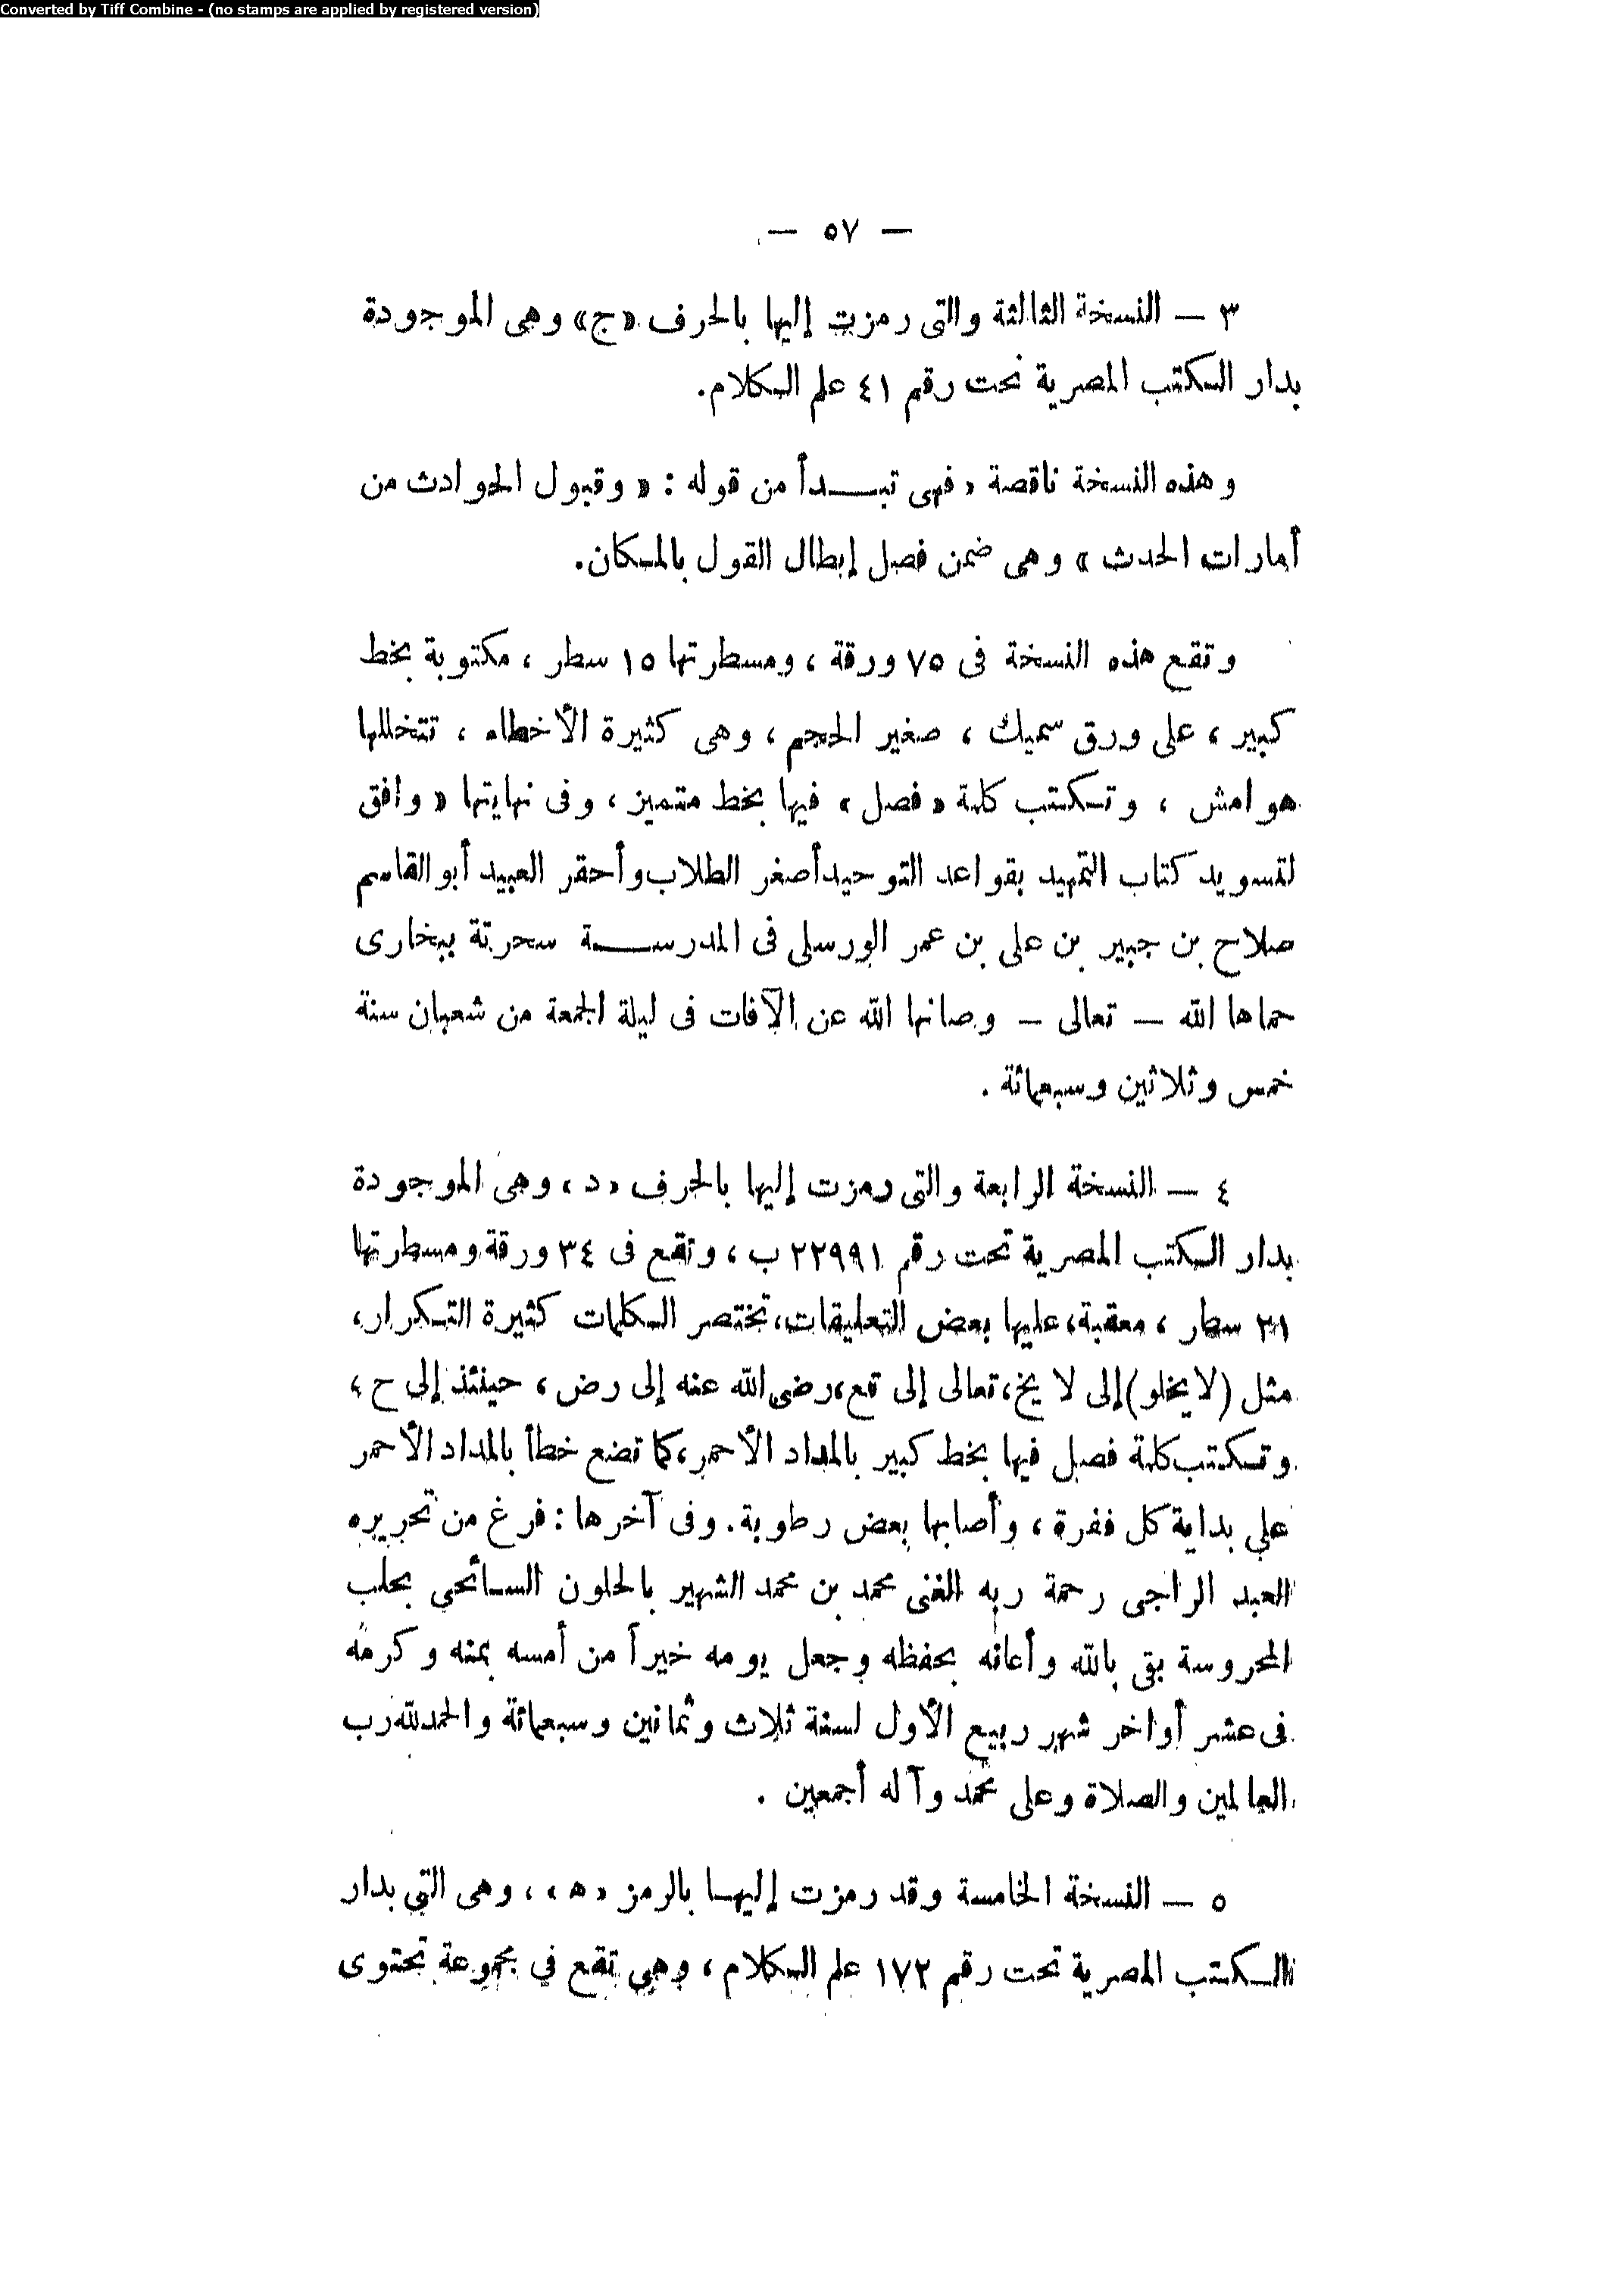 Converted by Tiff Combine - (no stamps are applied by registered version)
— ٥٧ —
٣ — النسخة الثالثة والتى رمزت إليها بالحرف «ج» وهى الموجودة
بدار الكتب المصرية تحت رقم ٤١ علم الكلام.
وهذه النسخة ناقصة ، فهى تبدأ من قوله : « وقبول الحوادث من
أمارات الحدث » وهى ضمن فصل إبطال القول بالمكان.
وتقع هذه النسخة فى ٧٥ ورقة ، ومسطرتها ١٥ سطر ، مكتوبة بخط
كبير ، على ورق سميك ، صغير الحجم ، وهى كثيرة الأخطاء ، تتخللها
هوامش ، وتكتب كلمة « فصل » فيها بخط متميز ، وفى نهايتها « وافق
لتسويد كتاب التمهيد بقواعد التوحيد أصغر الطلاب وأحقر العبيد أبو القاسم
صلاح بن جبير بن على بن عمر الورسلى فى المدرسة سحرتة ببخارى
حماها الله — تعالى — وصانها الله عن الآفات فى ليلة الجمعة من شعبان سنة
خمس وثلاثين وسبعمائة .
٤ — النسخة الرابعة والتى رمزت إليها بالحرف «د» ، وهى الموجودة
بدار الكتب المصرية تحت رقم ٢٢٩٩١ ب ، وتقع فى ٣٤ ورقة ومسطرتها
٣١ سطر ، معقبة ، عليها بعض التعليقات ، تختصر الكلمات كثيرة التكرار ،
مثل (لا يخلو) إلى لا يخ ، تعالى إلى تع ، رضى الله عنه إلى رض ، حينئذ إلى ح ،
وتكتب كلمة فصل فيها بخط كبير بالمداد الأحمر ، كما تضع خطأ بالمداد الأحمر
على بداية كل فقرة ، وأصابها بعض رطوبة . وفى آخرها : فرغ من تحريره
العبد الراجى رحمة ربه الغنى محمد بن محمد الشهير بالحلون السائحي بحلب
المحروسة بقى بالله وأعانه بحفظه وجعل يومه خيراً من أمسه بمنه وكرمه
فى عشر أواخر شهر ربيع الأول لسنة ثلاث وثمانين وسبعمائة والحمد لله رب
العالمين والصلاة وعلى محمد وآله أجمعين .
٥ — النسخة الخامسة وقد رمزت إليها بالرمز «ه» ، وهى التي بدار
الكتب المصرية تحت رقم ١٧٢ علم الكلام ، وهى تقع في مجموعة تحتوى